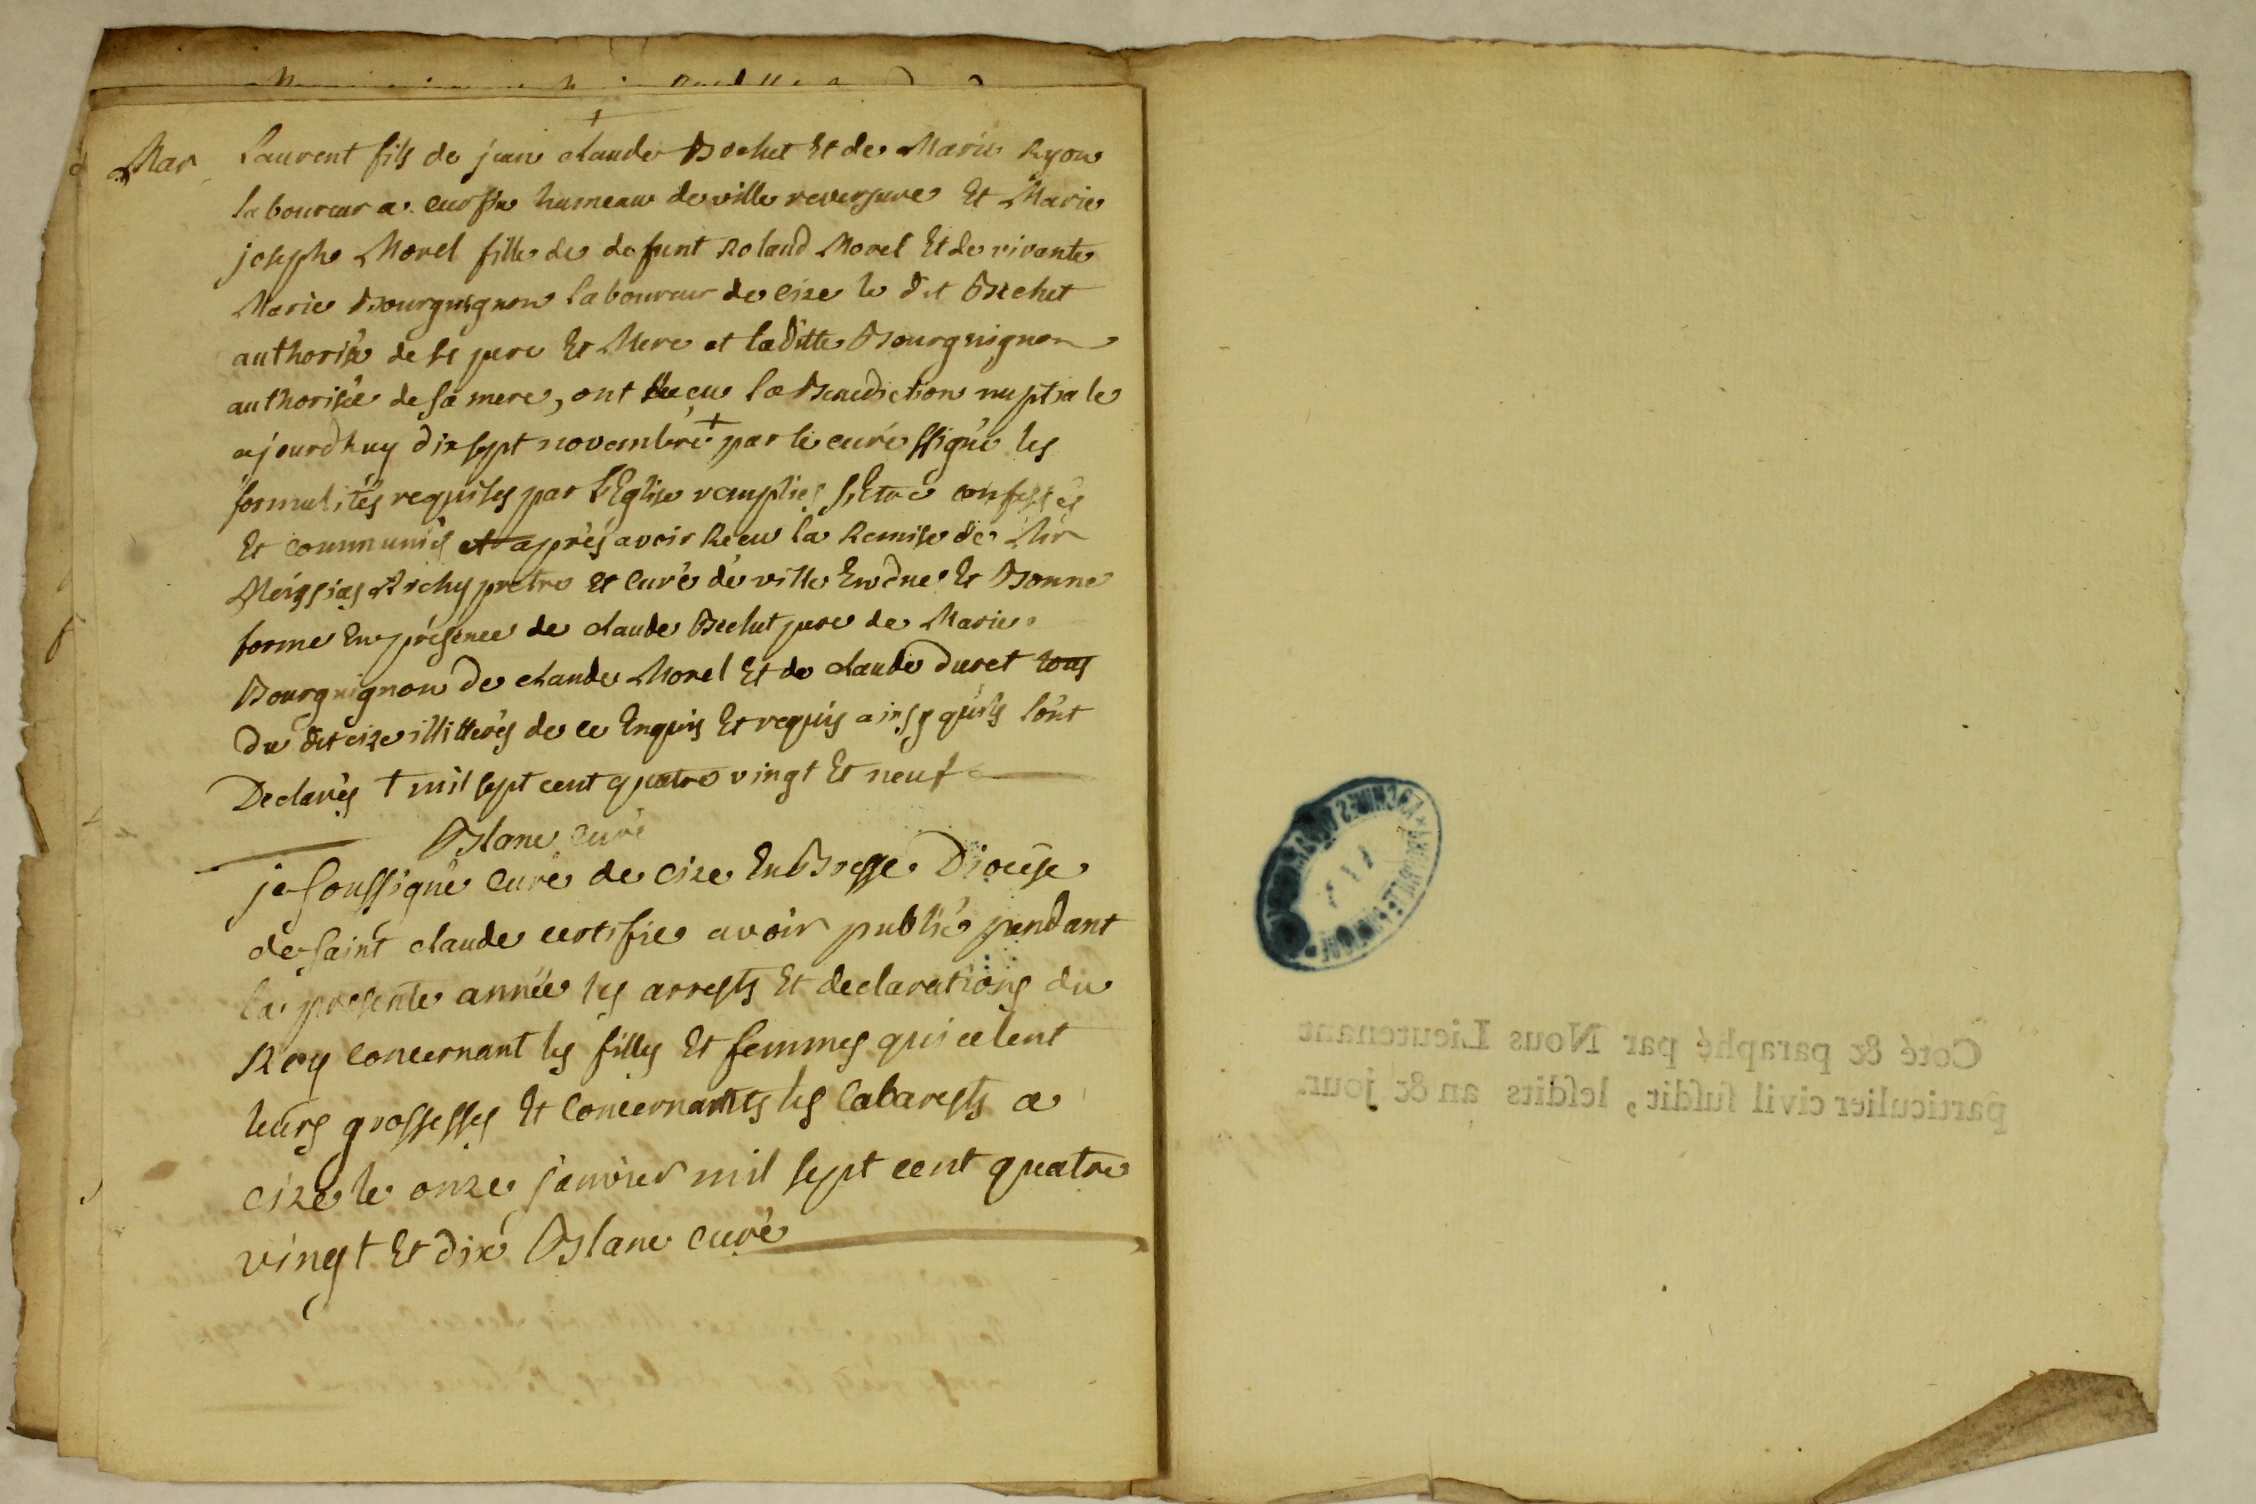 Mar
Laurent fils de jean claude Bochut Et de Marie Ryon
laboureur a cursia hameau de ville reversure Et Marie
josephe Morel fille de defunt Roland Morel Et de vivante
Marie Bourguignon laboureur de cize le dit Bochut
authorisé de se pere Et Mere et laditte Bourguignon
authorisée de sa mere, ont Receu la Benediction nuptiale
ajourdhuy dix sept novembre + par le curé ssigné les
formalités requises par L'Eglise remplies s'Etre confessés
Et communiés et après avoir Receu la Remise de Mr
Archypretre et Curé de ville En due Et Bonne
forme En présence de claude Bochut pere de Marie
Bourguignon de claude Morel Et de claude Duret tous
Du dit cize illitterés de ce Enquis Et requis ainsy qu'ils l'ont
Declarés + mil sept cent quatre vingt Et neuf
Blanc curé
je soussigné Curé de Cize En Bresse Diocèse
de saint claude certifie avoir publié pendant
la presente année les arrests Et declarations du
Roy concernant les filles Et femmes qui celent
leurs grossesses Et Concernantes les Cabarests a
Cize le onze janvier mil sept cent quatre
vingt Et dix Blanc curé
Coté & paraphé par Nous Lieutenant
particulier civil susdit, lesdits an & jour.